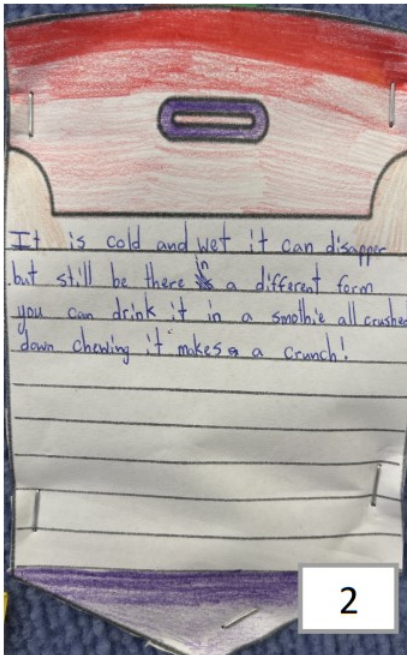 It is cold and wet it can disapper
but still be there in a different form
you can drink it in a smothie all crushed
down chewing it makes a crunch!
2